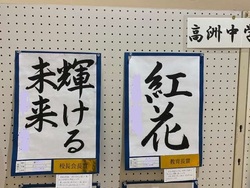 高洲中学
紅花
教育長賞
輝ける
未来
校長会長賞